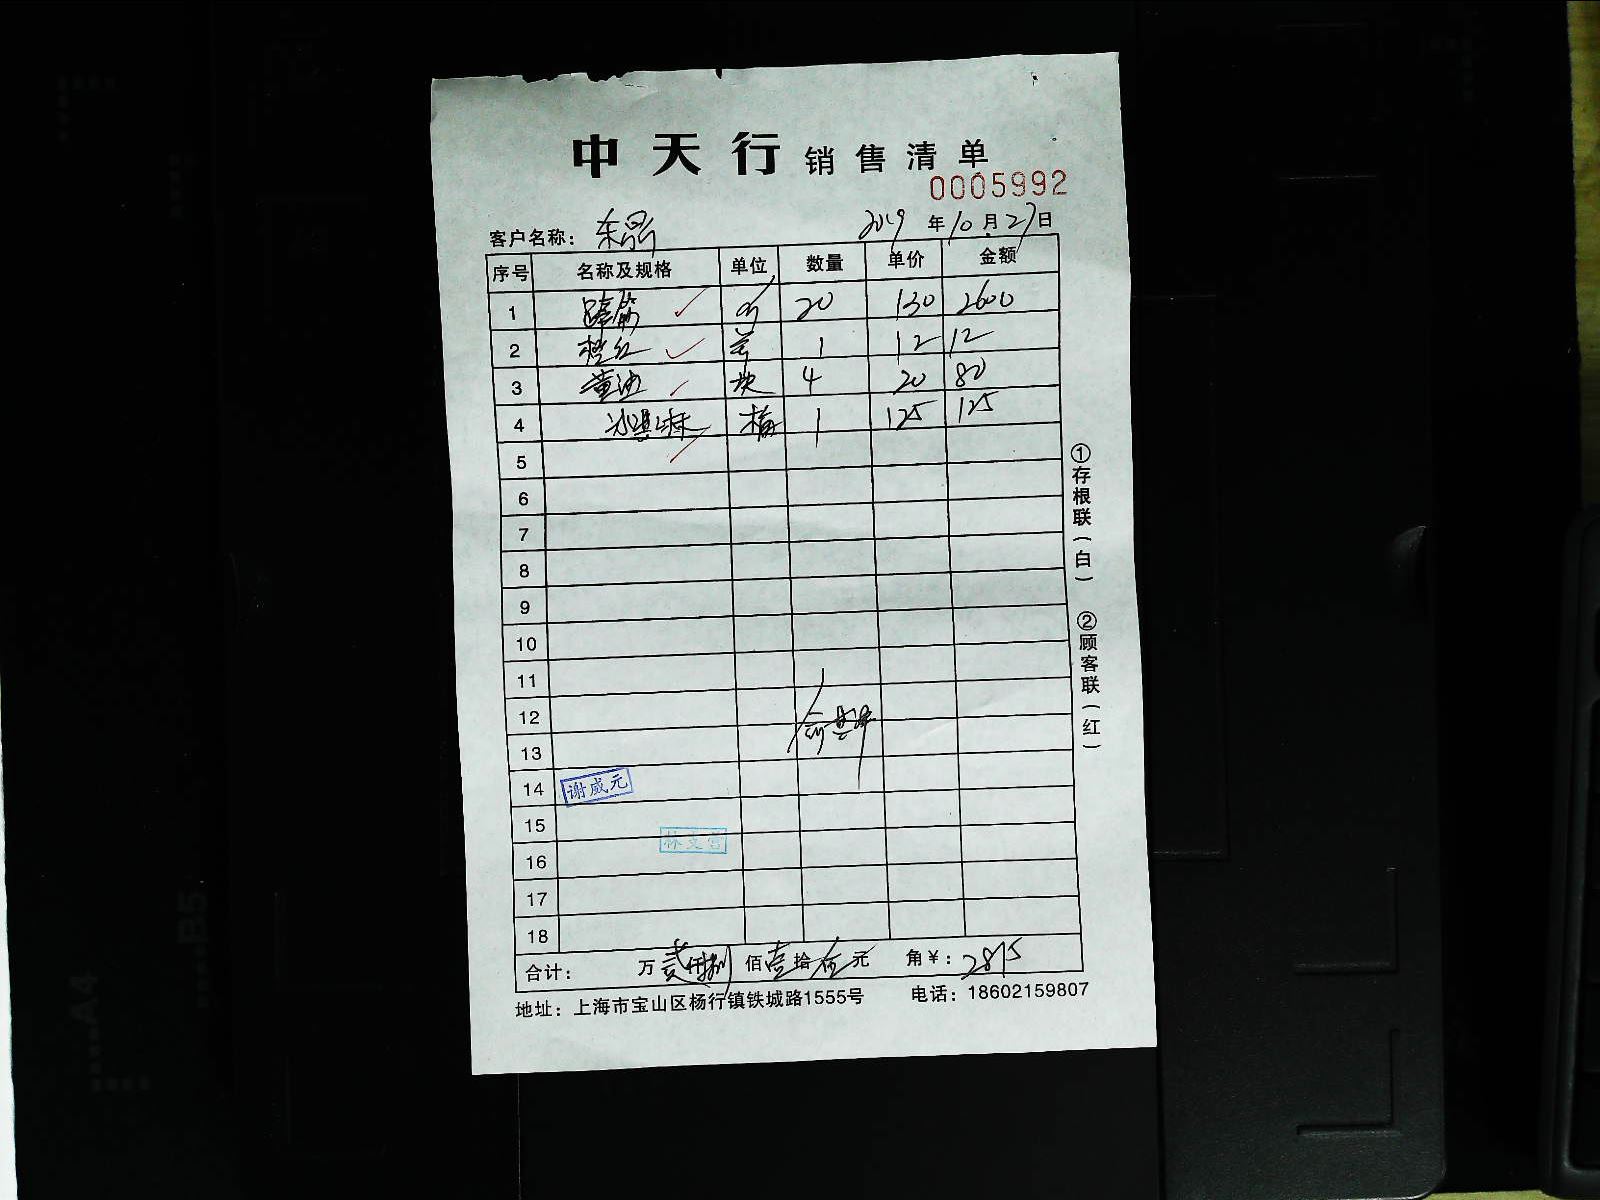 中天行 销售清单
0005992
客户名称： 东昂 2019 年 10 月 27 日
序号 名称及规格 单位 数量 单价 金额
1 蹄筋 20 130 2600
2 橙红 1 12 12
3 黄油 块 4 20 80
4 冰淇淋 桶 1 125 125
5
6
7
8
9
10
11
12
13
14 谢威元
15
16
17
18
合计： 万 贰仟捌 佰 壹 拾 伍 元 角￥： 2815
地址：上海市宝山区杨行镇铁城路1555号 电话：18602159807
①存根联（白） ②顾客联（红）